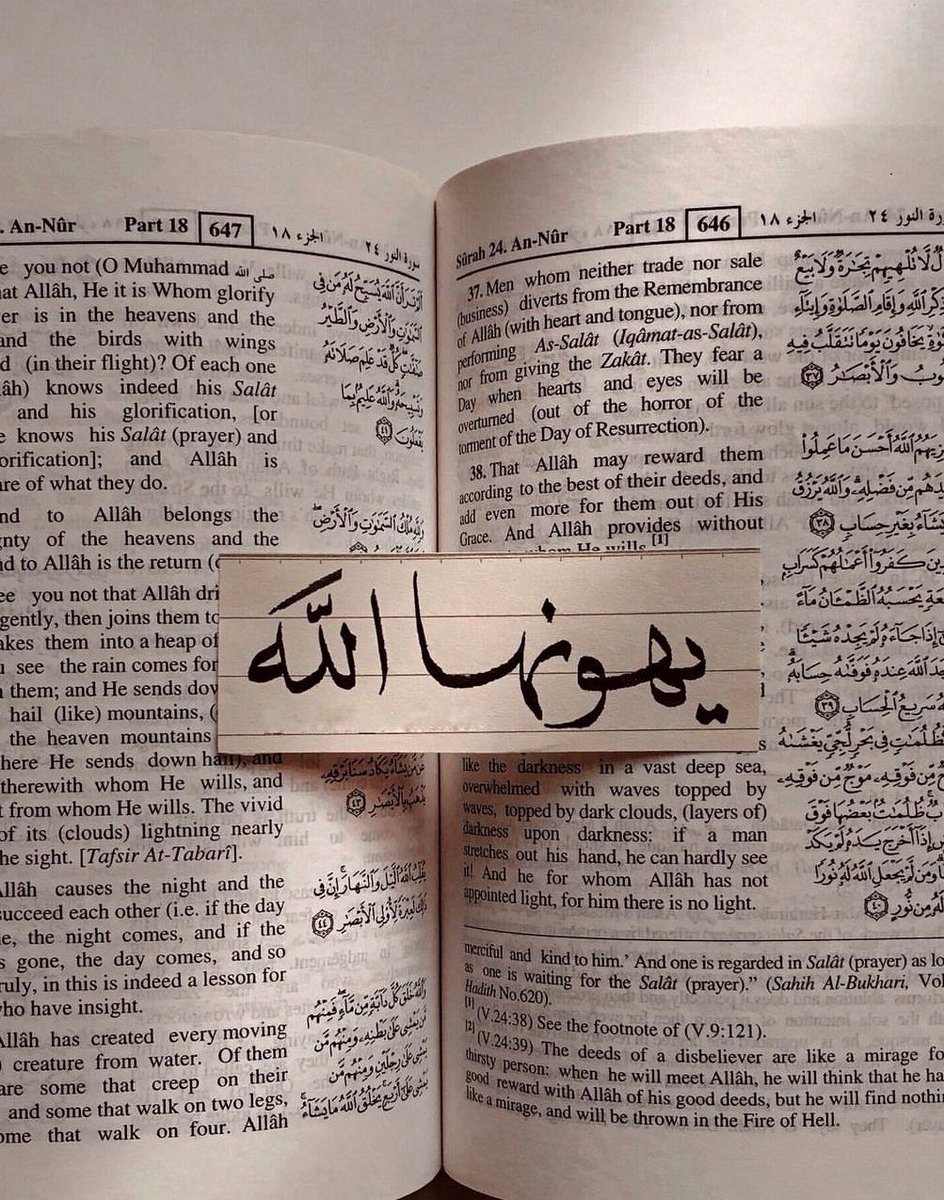 Sûrah 24. An-Nûr Part 18 646 الجزء ١٨ سورة النور ٢٤
37. Men whom neither trade nor sale
(business) diverts from the Remembrance
of Allâh (with heart and tongue), nor from
performing As-Salât (Iqâmat-as-Salât),
nor from giving the Zakât. They fear a
Day when hearts and eyes will be
overturned (out of the horror of the
torment of the Day of Resurrection).
38. That Allâh may reward them
according to the best of their deeds, and
add even more for them out of His
Grace. And Allâh provides without
whom He wills.[1]
like the darkness in a vast deep sea,
overwhelmed with waves topped by
waves, topped by dark clouds, (layers of)
darkness upon darkness: if a man
stretches out his hand, he can hardly see
it! And he for whom Allâh has not
appointed light, for him there is no light.
لَّا تُلْهِيهِمْ تِجَٰرَةٌ وَلَا بَيْعٌ
ذِكْرِ ٱللَّهِ وَإِقَامِ ٱلصَّلَوٰةِ وَإِيتَآءِ
يَخَافُونَ يَوْمًا تَتَقَلَّبُ فِيهِ
وَٱلْأَبْصَٰرُ ٣٧
ٱللَّهُ أَحْسَنَ مَا عَمِلُوا۟
مِّن فَضْلِهِۦ وَٱللَّهُ يَرْزُقُ
يَشَآءُ بِغَيْرِ حِسَابٍ ٣٨
كَفَرُوٓا۟ أَعْمَٰلُهُمْ كَسَرَابٍ
يَحْسَبُهُ ٱلظَّمْـَٔانُ مَآءً
إِذَا جَآءَهُۥ لَمْ يَجِدْهُ شَيْـًٔا
ٱللَّهَ عِندَهُۥ فَوَفَّىٰهُ حِسَابَهُۥ
سَرِيعُ ٱلْحِسَابِ ٣٩
كَظُلُمَٰتٍ فِى بَحْرٍ لُّجِّىٍّ يَغْشَىٰهُ
مِّن فَوْقِهِۦ مَوْجٌ مِّن فَوْقِهِۦ
ظُلُمَٰتٌۢ بَعْضُهَا فَوْقَ
إِذَآ أَخْرَجَ يَدَهُۥ لَمْ يَكَدْ
وَمَن لَّمْ يَجْعَلِ ٱللَّهُ لَهُۥ نُورًا
مِن نُّورٍ ٤٠
merciful and kind to him.' And one is regarded in Salât (prayer) as lo
as one is waiting for the Salât (prayer)." (Sahih Al-Bukhari, Vol
Hadith No.620).
[1] (V.24:38) See the footnote of (V.9:121).
[2] (V.24:39) The deeds of a disbeliever are like a mirage fo
thirsty person: when he will meet Allâh, he will think that he ha
good reward with Allâh of his good deeds, but he will find nothin
like a mirage, and will be thrown in the Fire of Hell.
يهونها الله
An-Nûr Part 18 647 الجزء ١٨ سورة النور ٢٤
you not (O Muhammad صلى الله
Allâh, He it is Whom glorify
is in the heavens and the
and the birds with wings
(in their flight)? Of each one
knows indeed his Salât
and his glorification, [or
knows his Salât (prayer) and
glorification]; and Allâh is
of what they do.
to Allâh belongs the
of the heavens and the
to Allâh is the return
you not that Allâh
gently, then joins them
them into a heap of
see the rain comes
them; and He sends
hail (like) mountains,
the heaven mountains
where He sends down hail), and
therewith whom He wills, and
from whom He wills. The vivid
of its (clouds) lightning nearly
the sight. [Tafsir At-Tabarî].
Allâh causes the night and the
succeed each other (i.e. if the day
the night comes, and if the
gone, the day comes, and so
Truly, in this is indeed a lesson for
who have insight.
Allâh has created every moving
creature from water. Of them
are some that creep on their
and some that walk on two legs,
some that walk on four. Allâh
أَلَمْ تَرَ أَنَّ ٱللَّهَ يُسَبِّحُ لَهُۥ مَن فِى
ٱلسَّمَٰوَٰتِ وَٱلْأَرْضِ وَٱلطَّيْرُ
صَٰٓفَّٰتٍ كُلٌّ قَدْ عَلِمَ صَلَاتَهُۥ
وَتَسْبِيحَهُۥ وَٱللَّهُ عَلِيمٌۢ بِمَا
يَفْعَلُونَ ٤١
وَلِلَّهِ مُلْكُ ٱلسَّمَٰوَٰتِ وَٱلْأَرْضِ
عَن مَّن يَشَآءُ يَكَادُ سَنَا بَرْقِهِۦ
يَذْهَبُ بِٱلْأَبْصَٰرِ ٤٣
يُقَلِّبُ ٱللَّهُ ٱلَّيْلَ وَٱلنَّهَارَ إِنَّ فِى
ذَٰلِكَ لَعِبْرَةً لِّأُو۟لِى ٱلْأَبْصَٰرِ ٤٤
وَٱللَّهُ خَلَقَ كُلَّ دَآبَّةٍ مِّن مَّآءٍ فَمِنْهُم
مَّن يَمْشِى عَلَىٰ بَطْنِهِۦ وَمِنْهُم مَّن
يَمْشِى عَلَىٰ رِجْلَيْنِ وَمِنْهُم مَّن
يَمْشِى عَلَىٰٓ أَرْبَعٍ يَخْلُقُ ٱللَّهُ مَا يَشَآءُ